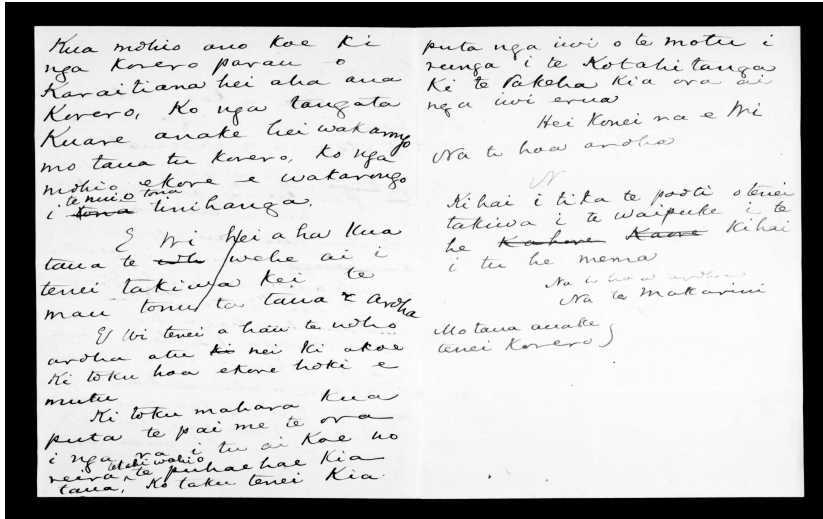 Kua mohio ano koe ki
nga korero parau o
Karaitiana hei aha ana
Korero, Ko nga tangata
Kuare anake hei wakarongo
mo taua tu korero, Ko nga
mohio ekore e wakarongo
te nui o tona
i tona tinihanga.
E Wi Hei aha Kua
taua te wehe ai i
tenei takiwa kei te
mau tonu ta taua aroha
E Wi tenei a hau te noho
aroha atu ki nei ki a koe
Ki toku hoa ekore hoki e
mutu
Ki toku mahara kua
puta te pai me te ora
i nga ra i tu ai koe no
reira te puhaehae kia
taua, Ko taku tenei Kia
puta nga iwi o te motu i
runga i te Kotahitanga
Ki te Pakeha Kia ora ai
nga iwi erua
Hei Konei ra e Wi
Na to hoa aroha
N
Kihai i tika te pooti o tenei
takiwa i te waipuke i te
he Kahore Kaore Kihai
i tu he mema
Na to hoa aroha
Na te Makarini
Mo taua anake
tenei Korero